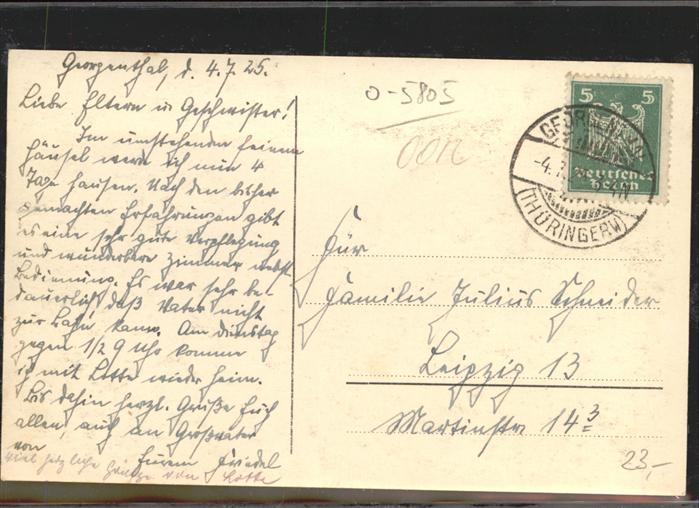 Georgenthal, d. 4.7.25.
Liebe Eltern u Geschwister!
Im umstehenden feinen
Häusel werde ich nun 4
Tage hausen. Nach den bisher
gemachten Erfahrungen gibt
es eine sehr gute Verpflegung
und wunderbare Zimmer nebst
Bedienung. Es war sehr be-
dauerlich, daß Vater nicht
zur Bahn kam. Am Dienstag
gegen 1/2 9 Uhr komme
ich mit Lotte wieder heim.
Bis dahin herzl. Grüße Euch
allen, auch an Großvater
von
Eurem Friedel
viel herzliche Grüße von Lotte
O-5805
5 5
Deutsches
Reich
GEORGENTHAL
-4.7.
(THÜRINGERW)
Für
Familie Julius Schneider
Leipzig 13
Martinstr 14 3
23,-